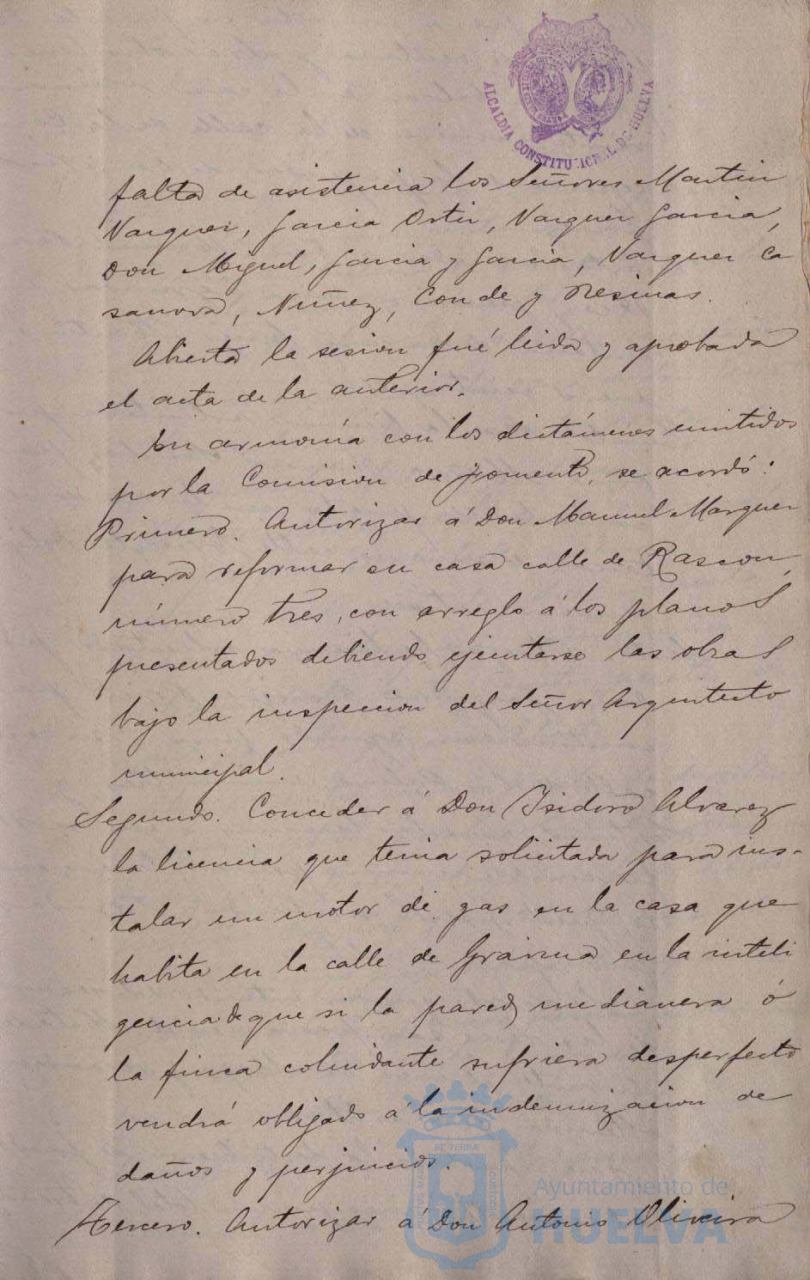 ALCALDIA CONSTITUCIONAL DE HUELVA
falta de asistencia los Señores Martin
Vazquez, Garcia Ortiz, Vazquez Garcia,
Don Miguel, Garcia y Garcia, Vazquez Ca
sanova, Nuñez, Conde y Resinas.
Abierta la sesion fué leida y aprobada
el acta de la anterior.
En armonía con los dictámenes emitidos
por la Comision de fomento, se acordó:
Primero. Autorizar á Don Manuel Marquez
para reformar su casa calle de Rascon,
número tres, con arreglo á los planos
presentados debiendo ejecutarse las obras
bajo la inspeccion del Señor Arquitecto
municipal.
Segundo. Conceder á Don Isidoro Alvarez
la licencia que tenia solicitada para ins-
talar un motor de gas en la casa que
habita en la calle de Gravina en la inteli
gencia de que si la pared medianera ó
la finca colindante sufriera desperfecto
vendrá obligado á la indemnizacion de
daños y perjuicios.
Tercero. Autorizar á Don Antonio Oliveira
Ayuntamiento de
HUELVA